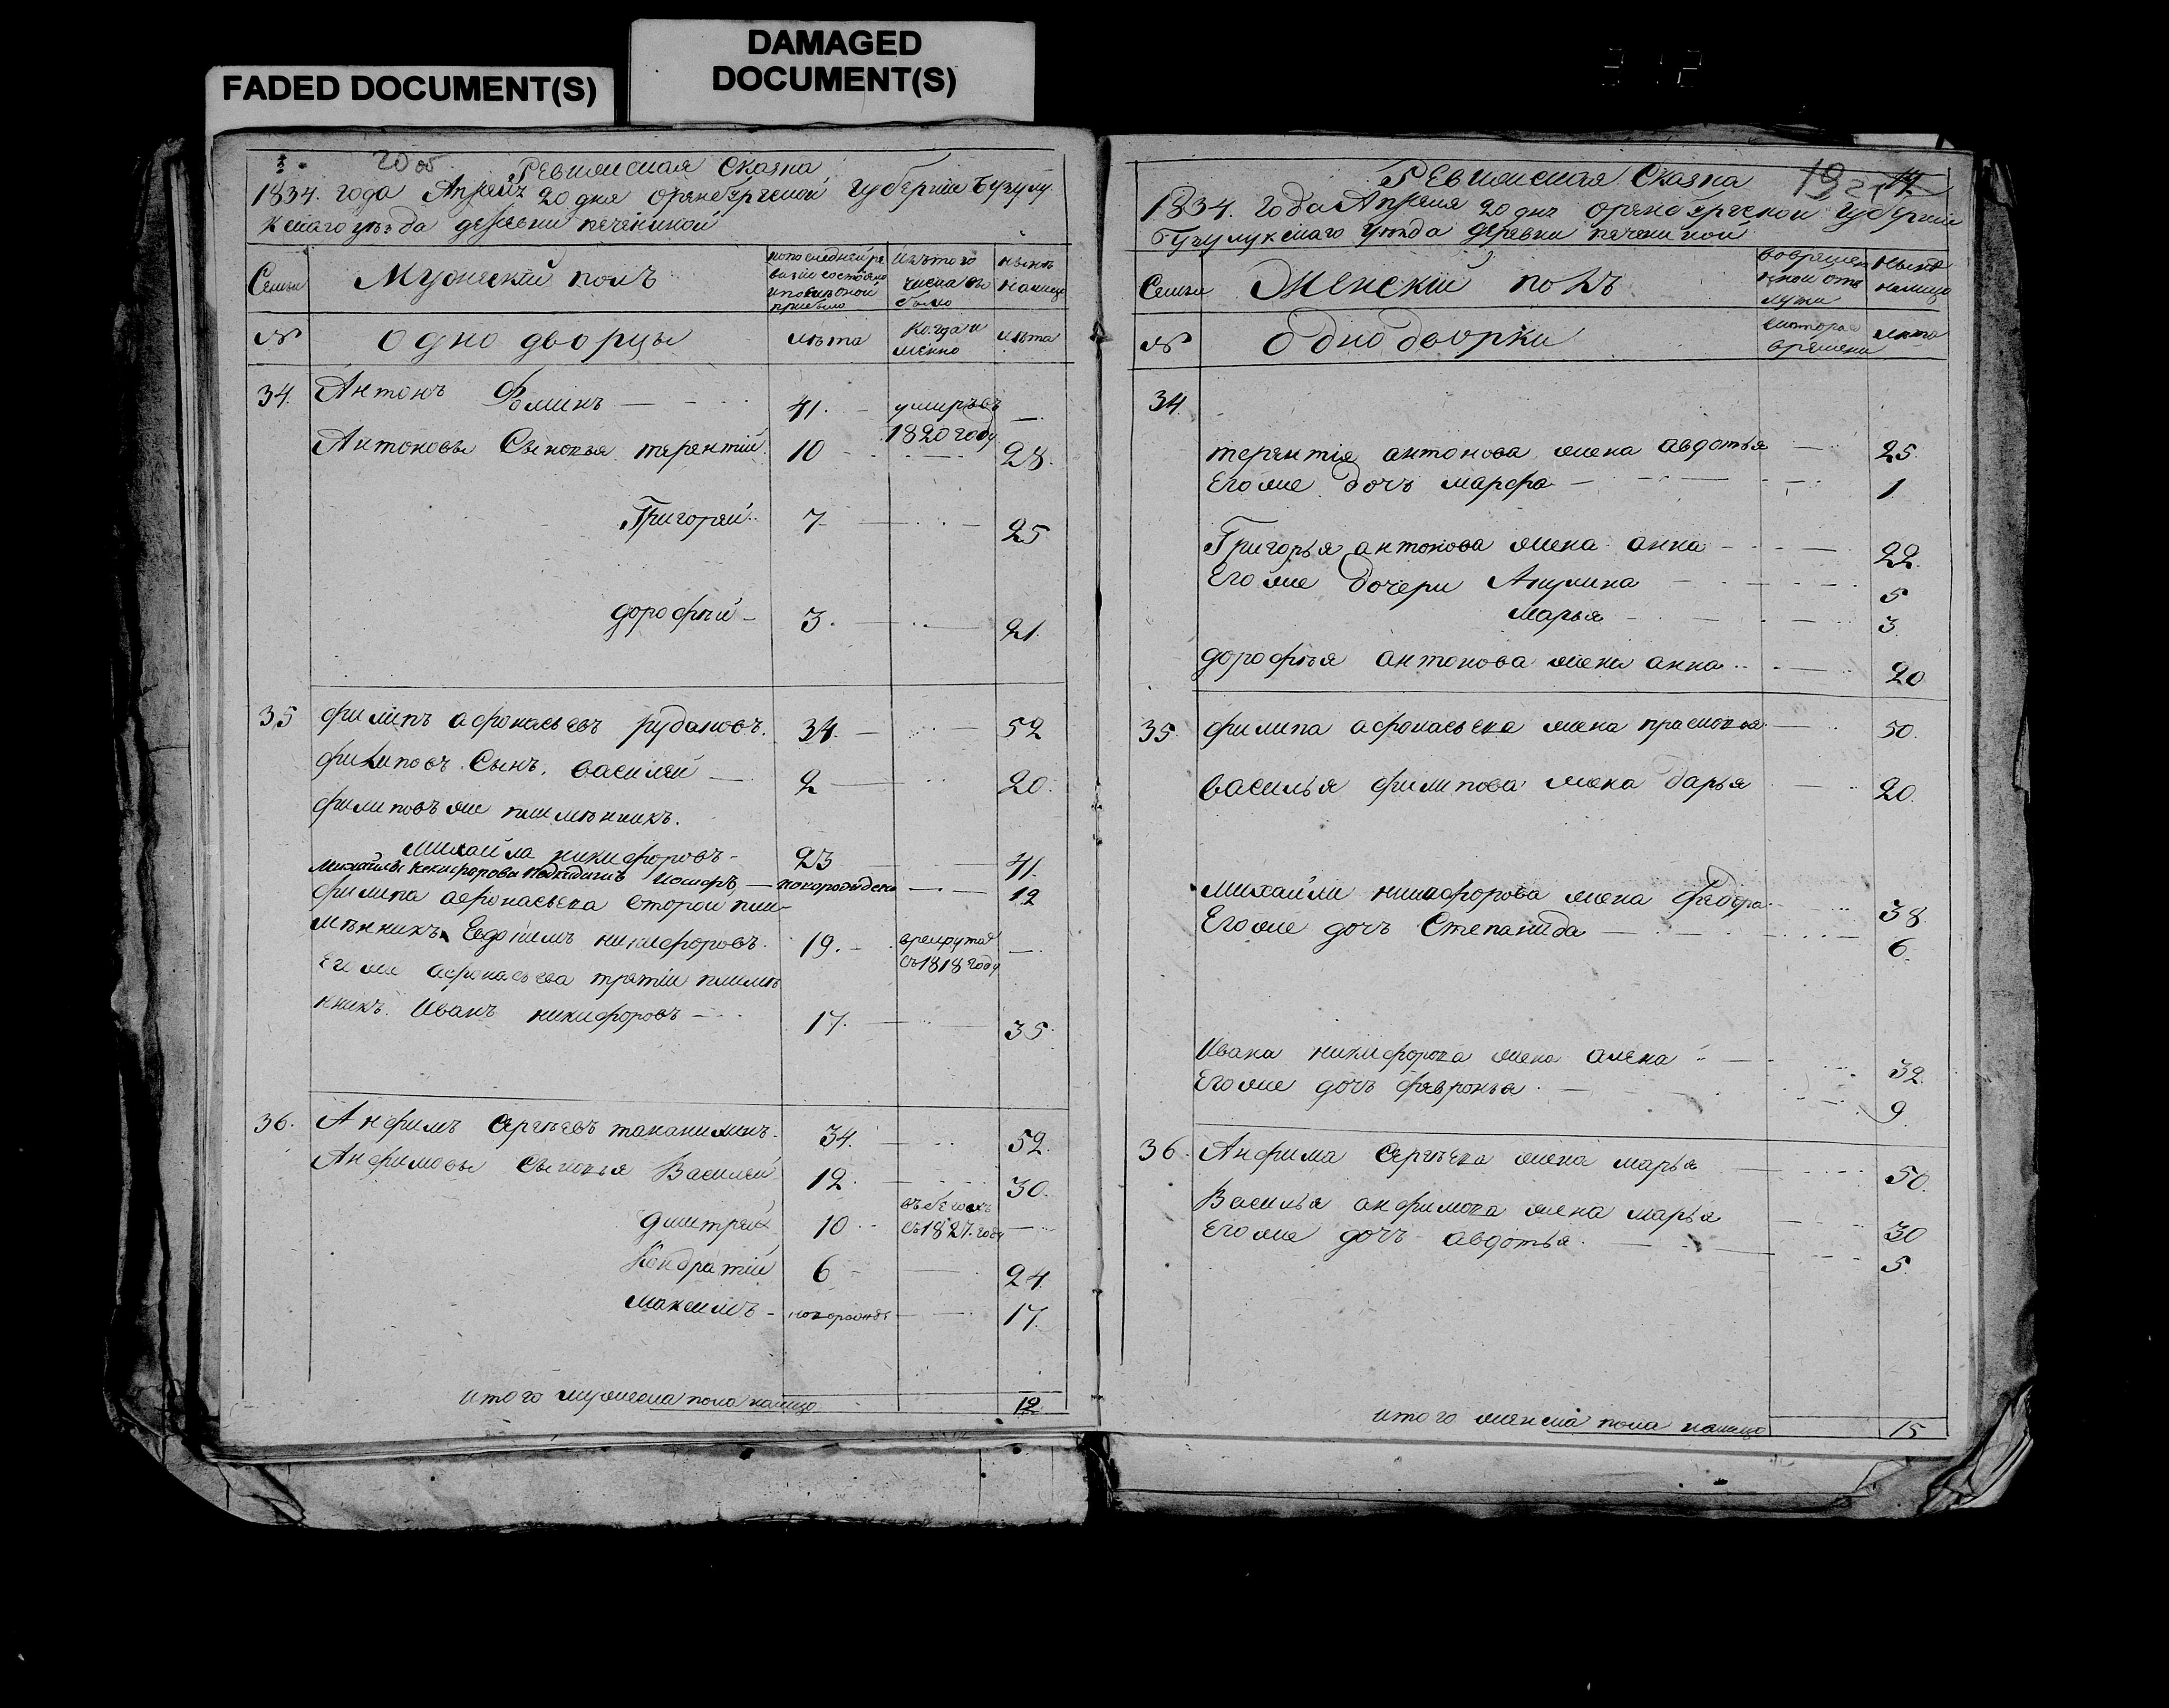 FADED DOCUMENT(S)
DAMAGED
DOCUMENT(S)
20 об
Ревизская Сказка
1834. года Апреля 20 дня оренбургской губернии Бузулу
кскаго уезда деревни печенкиной
Семьи
Мужеский полъ
по последней ре
визии состояло
и после оной
прибыло
Изъ того
числа вы
было
ныне
налицо
№
одно дворцы
лѣта
Когда и
менно
лѣта
34. Антонъ Фоминъ 41. умиръ въ
1820 году
Антоновы Сыновья терентiй 10 28.
Григорей 7 25
дорофѣй 3. 21.
35 филипъ афонасьевъ рудаковъ. 34. 52
филиповъ Сынъ. василей 2 20.
филиповъ же плимѣнникъ.
михайла никифоровъ 23 41.
михайлы некифорова подкидышъ иосифъ новорожденъ 12
филипа афонасьева второй пли
мѣнникъ Евдокимъ никифоровъ. 19. врекруты
съ 1818 году
Его же афонасьева третiи плимѣ
нникъ. Иванъ никифоровъ 17. 35.
36. Анфимъ Сергѣевъ 34. 52.
Анфимовы Сыновья Василей 12. 30.
дмитрей 10 въ бегахъ
съ 1827. году
Кондратiй 6 24.
максимъ новорожде 17.
итого мужеска пола налицо 12
Ревизская Сказка
19
1834. года Апреля 20 дня оренбургской губернии
Бузулукскаго уезда деревни печенкиной
Семьи
Женскiй полъ
во времен
ной отлу
ныне
налицо
№
однодворки
скоторого
времени
лета
34.
терентiя антонова жена авдотья 25.
Его же дочь марфа 1
Григорья антонова жена анна 22.
Его же дочери Акулина 5
марья 3.
дорофѣя антонова жена анна 20
35. филипа афонасьева жена прасковья 50.
василья филипова жена дарья 20.
михайли никифорова жена федора 38.
Его же дочь Степанида 6.
Ивана никифорова жена алена 32.
Его же дочь февронья 9.
36. Анфима Сергѣева жена марья 50.
Василья анфимова жена марья 30
Его же дочь авдотья 5.
итого женска пола налицо 15